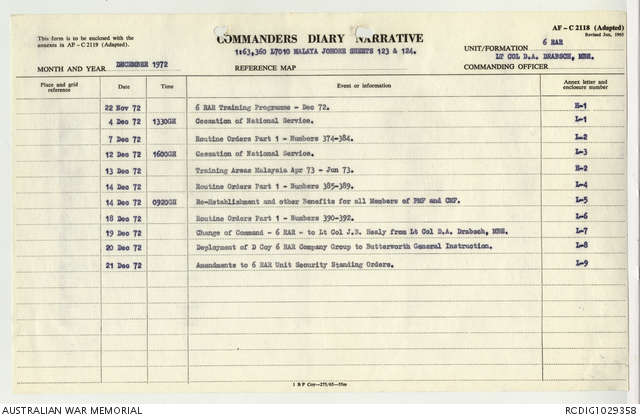 AF – C 2118 (Adapted)
Revised Jun, 1965
This form is to be enclosed with the
annexes in AF – C 2119 (Adapted).
COMMANDERS DIARY NARRATIVE
1:63,360 L7010 MALAYA JOHORE SHEETS 123 & 124.
UNIT/FORMATION 6 RAR
LT COL D.A. DRABSCH, MBE.
MONTH AND YEAR DECEMBER 1972
REFERENCE MAP
COMMANDING OFFICER
Place and grid reference Date Time Event or information Annex letter and enclosure number
22 Nov 72 6 RAR Training Programme - Dec 72. H-1
4 Dec 72 1330GH Cessation of National Service. L-1
7 Dec 72 Routine Orders Part 1 - Numbers 374-384. L-2
12 Dec 72 1600GH Cessation of National Service. L-3
13 Dec 72 Training Areas Malaysia Apr 73 - Jun 73. H-2
14 Dec 72 Routine Orders Part 1 - Numbers 385-389. L-4
14 Dec 72 0920GH Re-Establishment and other Benefits for all Members of PMF and CMF. L-5
18 Dec 72 Routine Orders Part 1 - Numbers 390-392. L-6
19 Dec 72 Change of Command - 6 RAR - to Lt Col J.B. Healy from Lt Col D.A. Drabsch, MBE. L-7
20 Dec 72 Deployment of D Coy 6 RAR Company Group to Butterworth General Instruction. L-8
21 Dec 72 Amendments to 6 RAR Unit Security Standing Orders. L-9
1 B P Coy—275/65—55m
AUSTRALIAN WAR MEMORIAL
RCDIG1029358